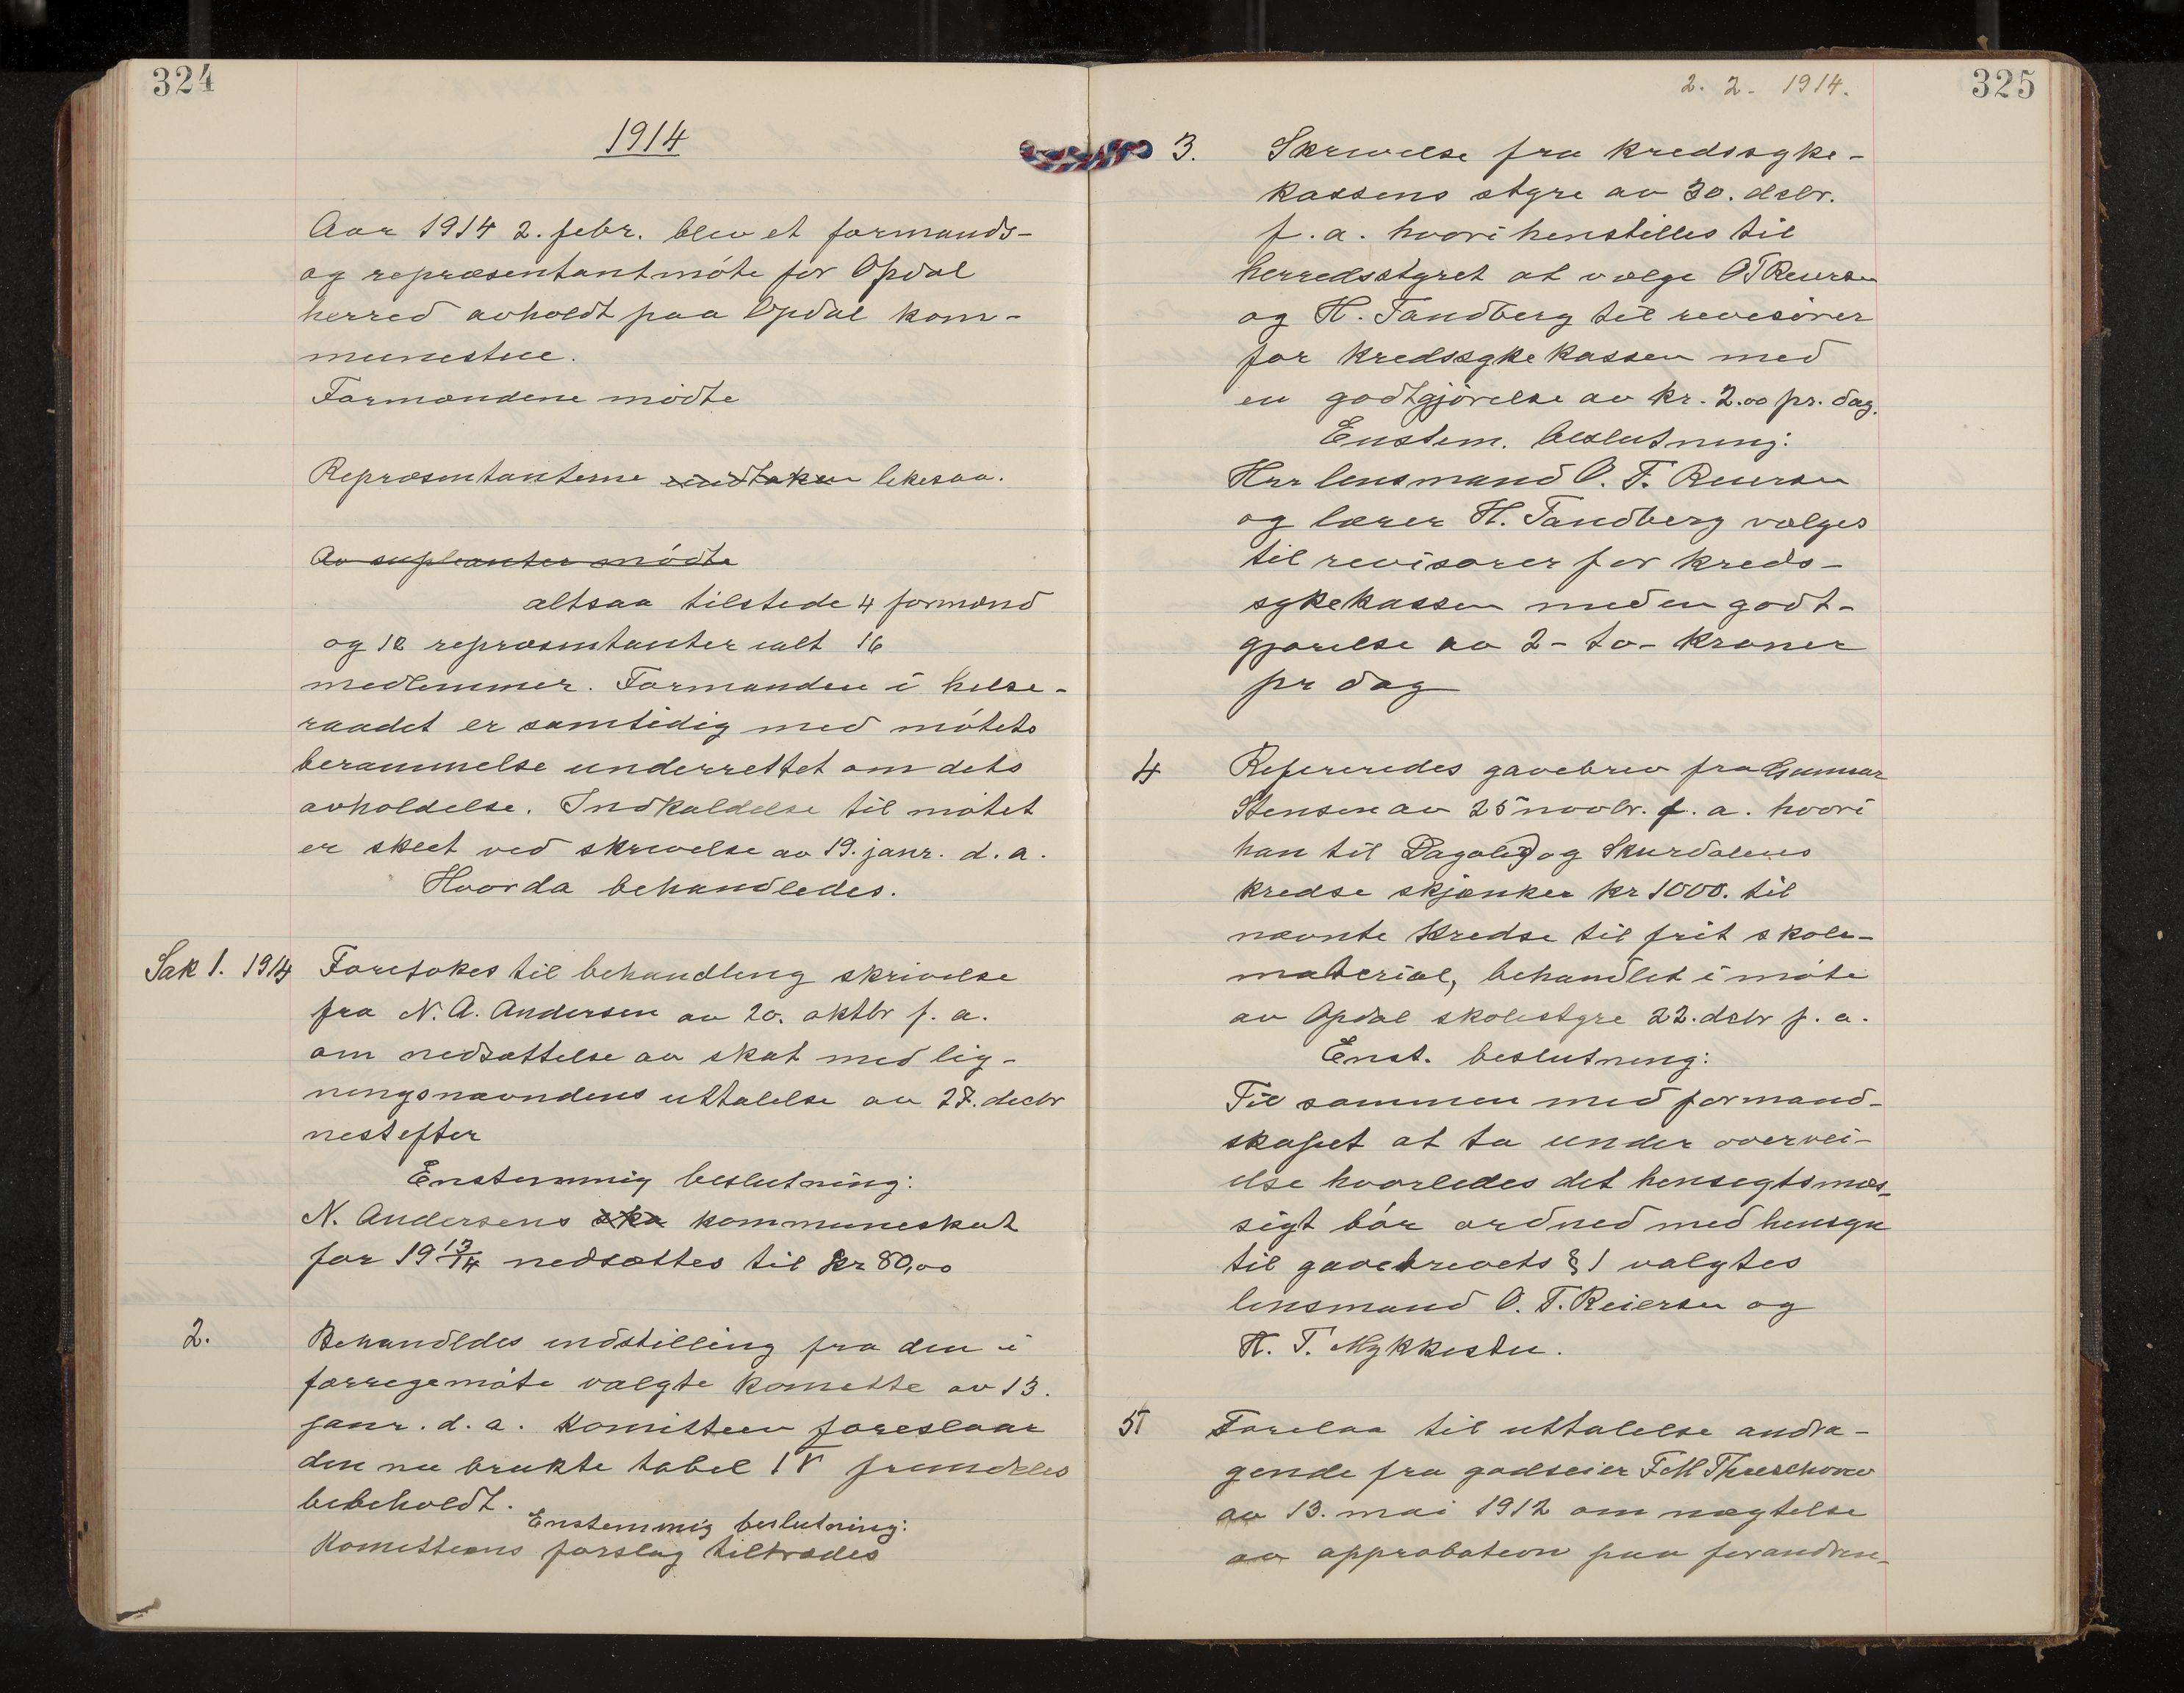 324
1914
Aar 1914 2. febr. blev et formands-
og repræsentantmöte for Opdal
herred avholdt paa Opdal kom-
munestue.
Formændene mödte
Repræsentanterne undtaken likesaa.
Av supleanter mödte
altsaa tilstede 4 formænd
og 12 repræsentanter ialt 16
medlemmer. Formanden i helse-
raadet er samtidig med mötets
berammelse underrettet om dets
avholdelse. Indkaldelse til mötet
er skeet ved skrivelse av 19. janr. d. a.
Hvorda behandledes.
Sak 1. 1914 Foretokes til behandling skrivelse
fra N. A. Andersen av 20. oktbr f. a.
om nedsættelse av skat med lig-
ningsnævndens uttalelse av 27. decbr
nestefter
Enstemmig beslutning:
N. Andersens ska kommuneskat
for 19 13/14 nedsættes til kr 80,00
2. Behandldes indstilling fra den i
forrige möte valgte komitte av 13.
janr. d. a. Komitteen foreslaar
den nu brukte tabel IV fremdeles
bebeholdt.
Enstemmig beslutning:
Komitteens forslag tiltrædes
2. 2. 1914.
325
3. Skrivelse fra kredssyke-
kassens styre av 30. dcbr.
f. a. hvori henstilles til
herredsstyret at vælge O T Reiersen
og H. Tandberg til revisörer
for kredssykekassen med
en godtgjörelse av kr. 2.00 pr. dag.
Enstem. beslutning:
Herr lensmand O. T. Reiersen
og lærer H. Tandberg vælges
til revisorer for kreds-
sykekassen med en godt-
gjørelse av 2 - to - kroner
pr dag
4 Refereredes gavebrev fra Gunnar
Stensen av 25 novbr. f. a. hvori
han til Dagali og Skurdalens
kredse skjænker kr 1000. til
nævnte kredse til frit skole-
material, behandlet i möte
av Opdal skolestyre 22. dcbr f. a.
Enst. beslutning:
Til sammen med formand-
skapet at ta under overvei-
else hvorledes det hensegtsmæs-
sigt bör ordned med hensyn
til gavebrevets § 1 valgtes
lensmand O. T. Reiersen og
H. T. Mykkestu.
5 Forelaa til uttalelse andra-
gende fra godseier F M Threschow
av 13. mai 1912 om nægtelse
av approbation paa forandren-